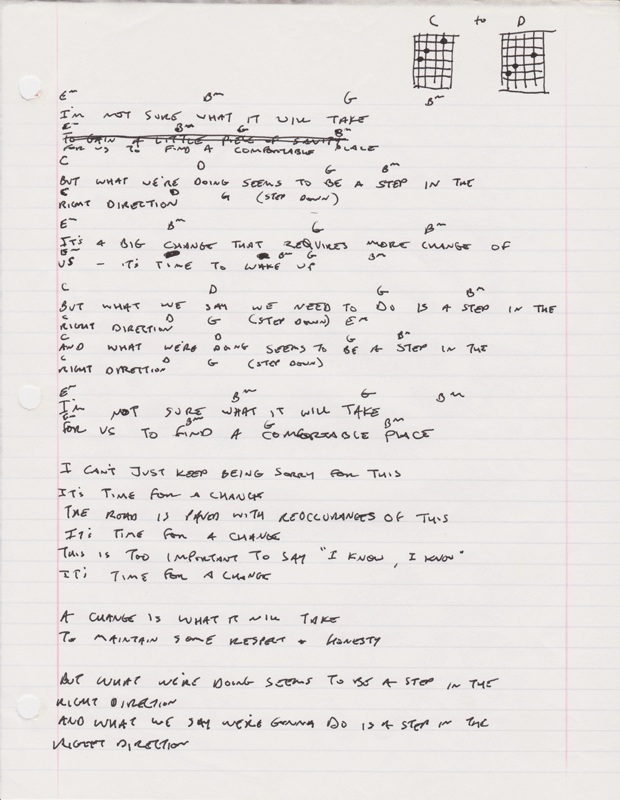 C to D
Em Bm G Bm
I'M NOT SURE WHAT IT WILL TAKE
Em Bm G Bm
TO GAIN A LITTLE PIECE OF SANITY
FOR US TO FIND A COMFORTABLE PLACE
C D G Bm
BUT WHAT WE'RE DOING SEEMS TO BE A STEP IN THE
C D G (STEP DOWN)
RIGHT DIRECTION
Em Bm G Bm
IT'S A BIG CHANGE THAT REQUIRES MORE CHANGE OF
Em Bm G Bm
US – IT'S TIME TO WAKE UP
C D G Bm
BUT WHAT WE SAY WE NEED TO DO IS A STEP IN THE
C D G (STEP DOWN) Em
RIGHT DIRECTION
C D G Bm
AND WHAT WE'RE DOING SEEMS TO BE A STEP IN THE
C D G (STEP DOWN)
RIGHT DIRECTION
Em Bm G Bm
I'M NOT SURE WHAT IT WILL TAKE
Em Bm G Bm
FOR US TO FIND A COMFORTABLE PLACE
I CAN'T JUST KEEP BEING SORRY FOR THIS
IT'S TIME FOR A CHANGE
THE ROAD IS PAVED WITH REOCCURANCES OF THIS
IT'S TIME FOR A CHANGE
THIS IS TOO IMPORTANT TO SAY "I KNOW, I KNOW"
IT'S TIME FOR A CHANGE
A CHANGE IS WHAT IT WILL TAKE
TO MAINTAIN SOME RESPECT + HONESTY
BUT WHAT WE'RE DOING SEEMS TO BE A STEP IN THE
RIGHT DIRECTION
AND WHAT WE SAY WE'RE GONNA DO IS A STEP IN THE
RIGHT DIRECTION